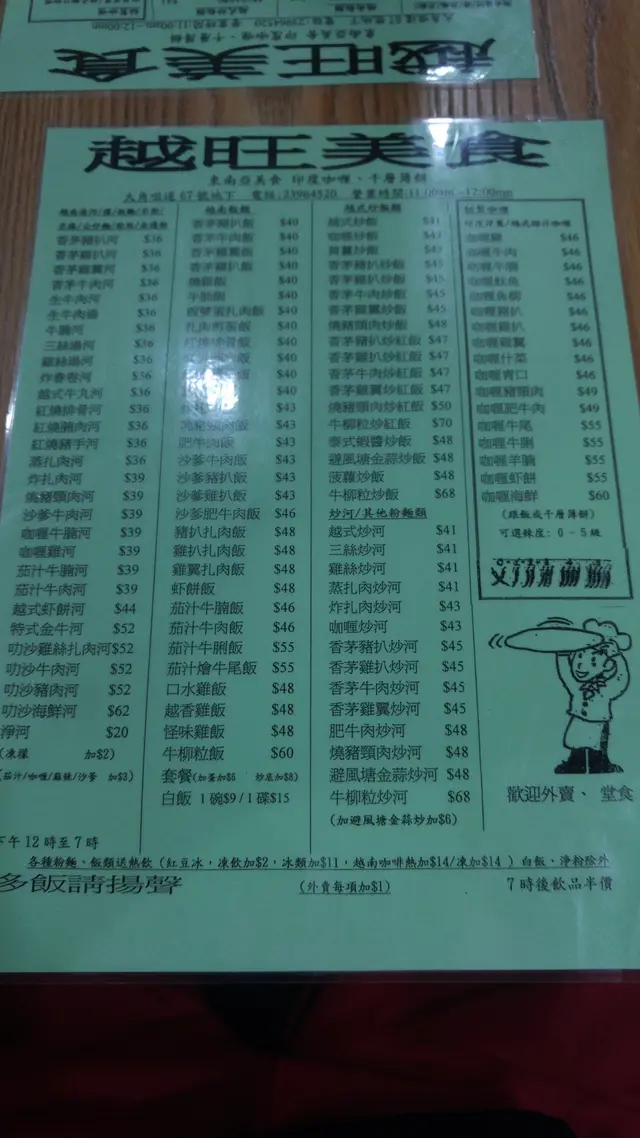 越旺美食
東南亞美食 印度咖喱、千層薄餅
大角咀道 67 號地下 電話:23964520 營業時間:11:00am -12:00mn
香茅豬扒河 $36
香茅雞扒河 $36
香茅雞翼河 $36
香茅牛肉河 $36
生牛肉河 $36
生牛肉湯 $36
牛腩河 $36
三絲湯河 $36
雞絲湯河 $36
炸春卷河 $36
越式牛丸河 $36
紅燒排骨河 $36
紅燒腩肉河 $36
紅燒豬手河 $36
蒸扎肉河 $36
炸扎肉河 $39
燒豬頸肉河 $39
沙爹牛肉河 $39
咖喱牛腩河 $39
咖喱雞河 $39
茄汁牛腩河 $39
茄汁牛肉河 $39
越式虾餅河 $44
特式金牛河 $52
叻沙雞絲扎肉河$52
叻沙牛肉河 $52
叻沙豬肉河 $52
叻沙海鮮河 $62
淨河 $20
(凍檬 加$2)
(茄汁/咖喱/麻辣/沙爹 加$3)
越南飯類
香茅豬扒飯 $40
香茅牛肉飯 $40
香茅雞翼飯 $40
香茅雞扒飯 $40
燒雞飯 $40
牛腩飯 $40
$40
扎肉煎蛋飯 $40
紅燒排骨飯 $40
$40
$40
$43
豬頸肉飯 $43
肥牛肉飯 $43
沙爹牛肉飯 $43
沙爹豬扒飯 $43
沙爹雞扒飯 $43
沙爹肥牛肉飯 $46
豬扒扎肉飯 $48
雞扒扎肉飯 $48
雞翼扎肉飯 $48
虾餅飯 $48
茄汁牛腩飯 $46
茄汁牛肉飯 $46
茄汁牛脷飯 $55
茄汁燴牛尾飯 $55
口水雞飯 $48
越香雞飯 $48
怪味雞飯 $48
牛柳粒飯 $60
套餐(加蛋加$6 炒底加$8)
白飯 1 碗$9 / 1 碟$15
越式炒飯類
越式炒飯 $41
咖喱炒飯 $43
炒飯 $43
香茅豬扒炒飯 $45
香茅雞扒炒飯 $45
香茅牛肉炒飯 $45
香茅雞翼炒飯 $45
燒豬頸肉炒飯 $48
香茅豬扒炒紅飯 $47
香茅雞扒炒紅飯 $47
香茅牛肉炒紅飯 $47
香茅雞翼炒紅飯 $47
燒豬頸肉炒紅飯 $50
牛柳粒炒紅飯 $70
泰式蝦醬炒飯 $48
避風塘金蒜炒飯 $48
菠蘿炒飯 $48
牛柳粒炒飯 $68
炒河/其他粉麵類
越式炒河 $41
三絲炒河 $41
雞絲炒河 $41
蒸扎肉炒河 $41
炸扎肉炒河 $43
咖喱炒河 $43
香茅豬扒炒河 $45
香茅雞扒炒河 $45
香茅牛肉炒河 $45
香茅雞翼炒河 $45
肥牛肉炒河 $48
燒豬頸肉炒河 $48
避風塘金蒜炒河 $48
牛柳粒炒河 $68
(加避風塘金蒜炒加$6)
咖喱雞 $46
咖喱牛肉 $46
咖喱牛腩 $46
咖喱魷魚 $46
咖喱魚柳 $46
咖喱豬扒 $46
咖喱雞扒 $46
咖喱雞翼 $46
咖喱什菜 $46
咖喱青口 $46
咖喱豬頸肉 $49
咖喱肥牛肉 $49
咖喱牛尾 $55
咖喱牛脷 $55
咖喱羊腩 $55
咖喱虾餅 $55
咖喱海鮮 $60
(跟飯或千層薄餅)
可選辣度: 0 - 5 級
歡迎外賣、 堂食
下午 12 時至 7 時
各種粉麵、飯類送熱飲 ( 紅豆冰，凍飲加$2，冰類加$11，越南咖啡熱加$14/凍加$14 ) 白飯、淨粉除外
多飯請揚聲 (外賣每項加$1) 7 時後飲品半價